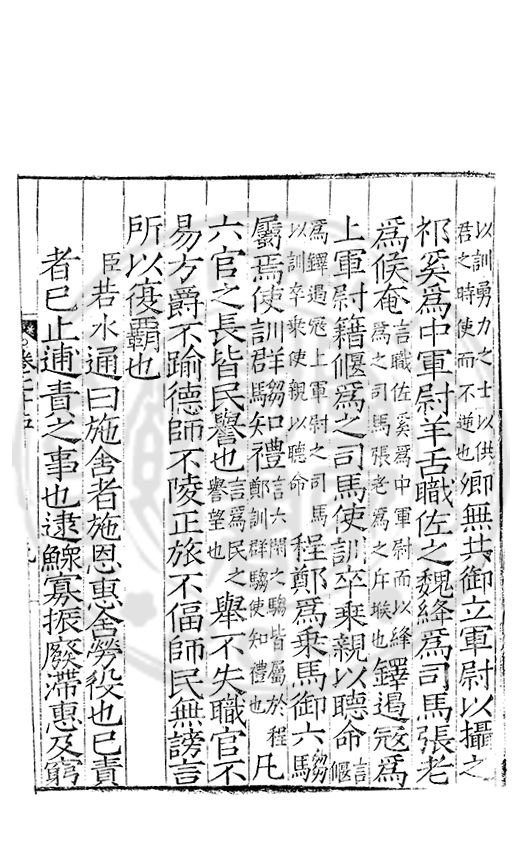 以訓勇力之士以供君之時使而不逆也卿無共御立軍尉以攝之
祁奚爲中軍尉羊舌職佐之魏絳爲司馬張老
爲候奄言職佐奚爲中軍尉而以絳爲之司馬張老爲之斥堠也鐸遏冦爲
上軍尉籍偃爲之司馬使訓卒乘親以聽命言偃
爲鐸遏冦上軍尉之司馬以訓卒乘使親以聽命程鄭爲乗馬御六騶
屬焉使訓群騶知禮言六閑之騶皆屬於程鄭訓群騶使知禮也凡
六官之長皆民譽也言爲民之譽望也舉不失職官不
易方爵不踰德師不陵正旅不偪師民無謗言
所以復霸也
臣若水通曰施舍者施恩惠舍勞役也已責
者已止逋責之事也逮鰥寡振廢滯惠及窮